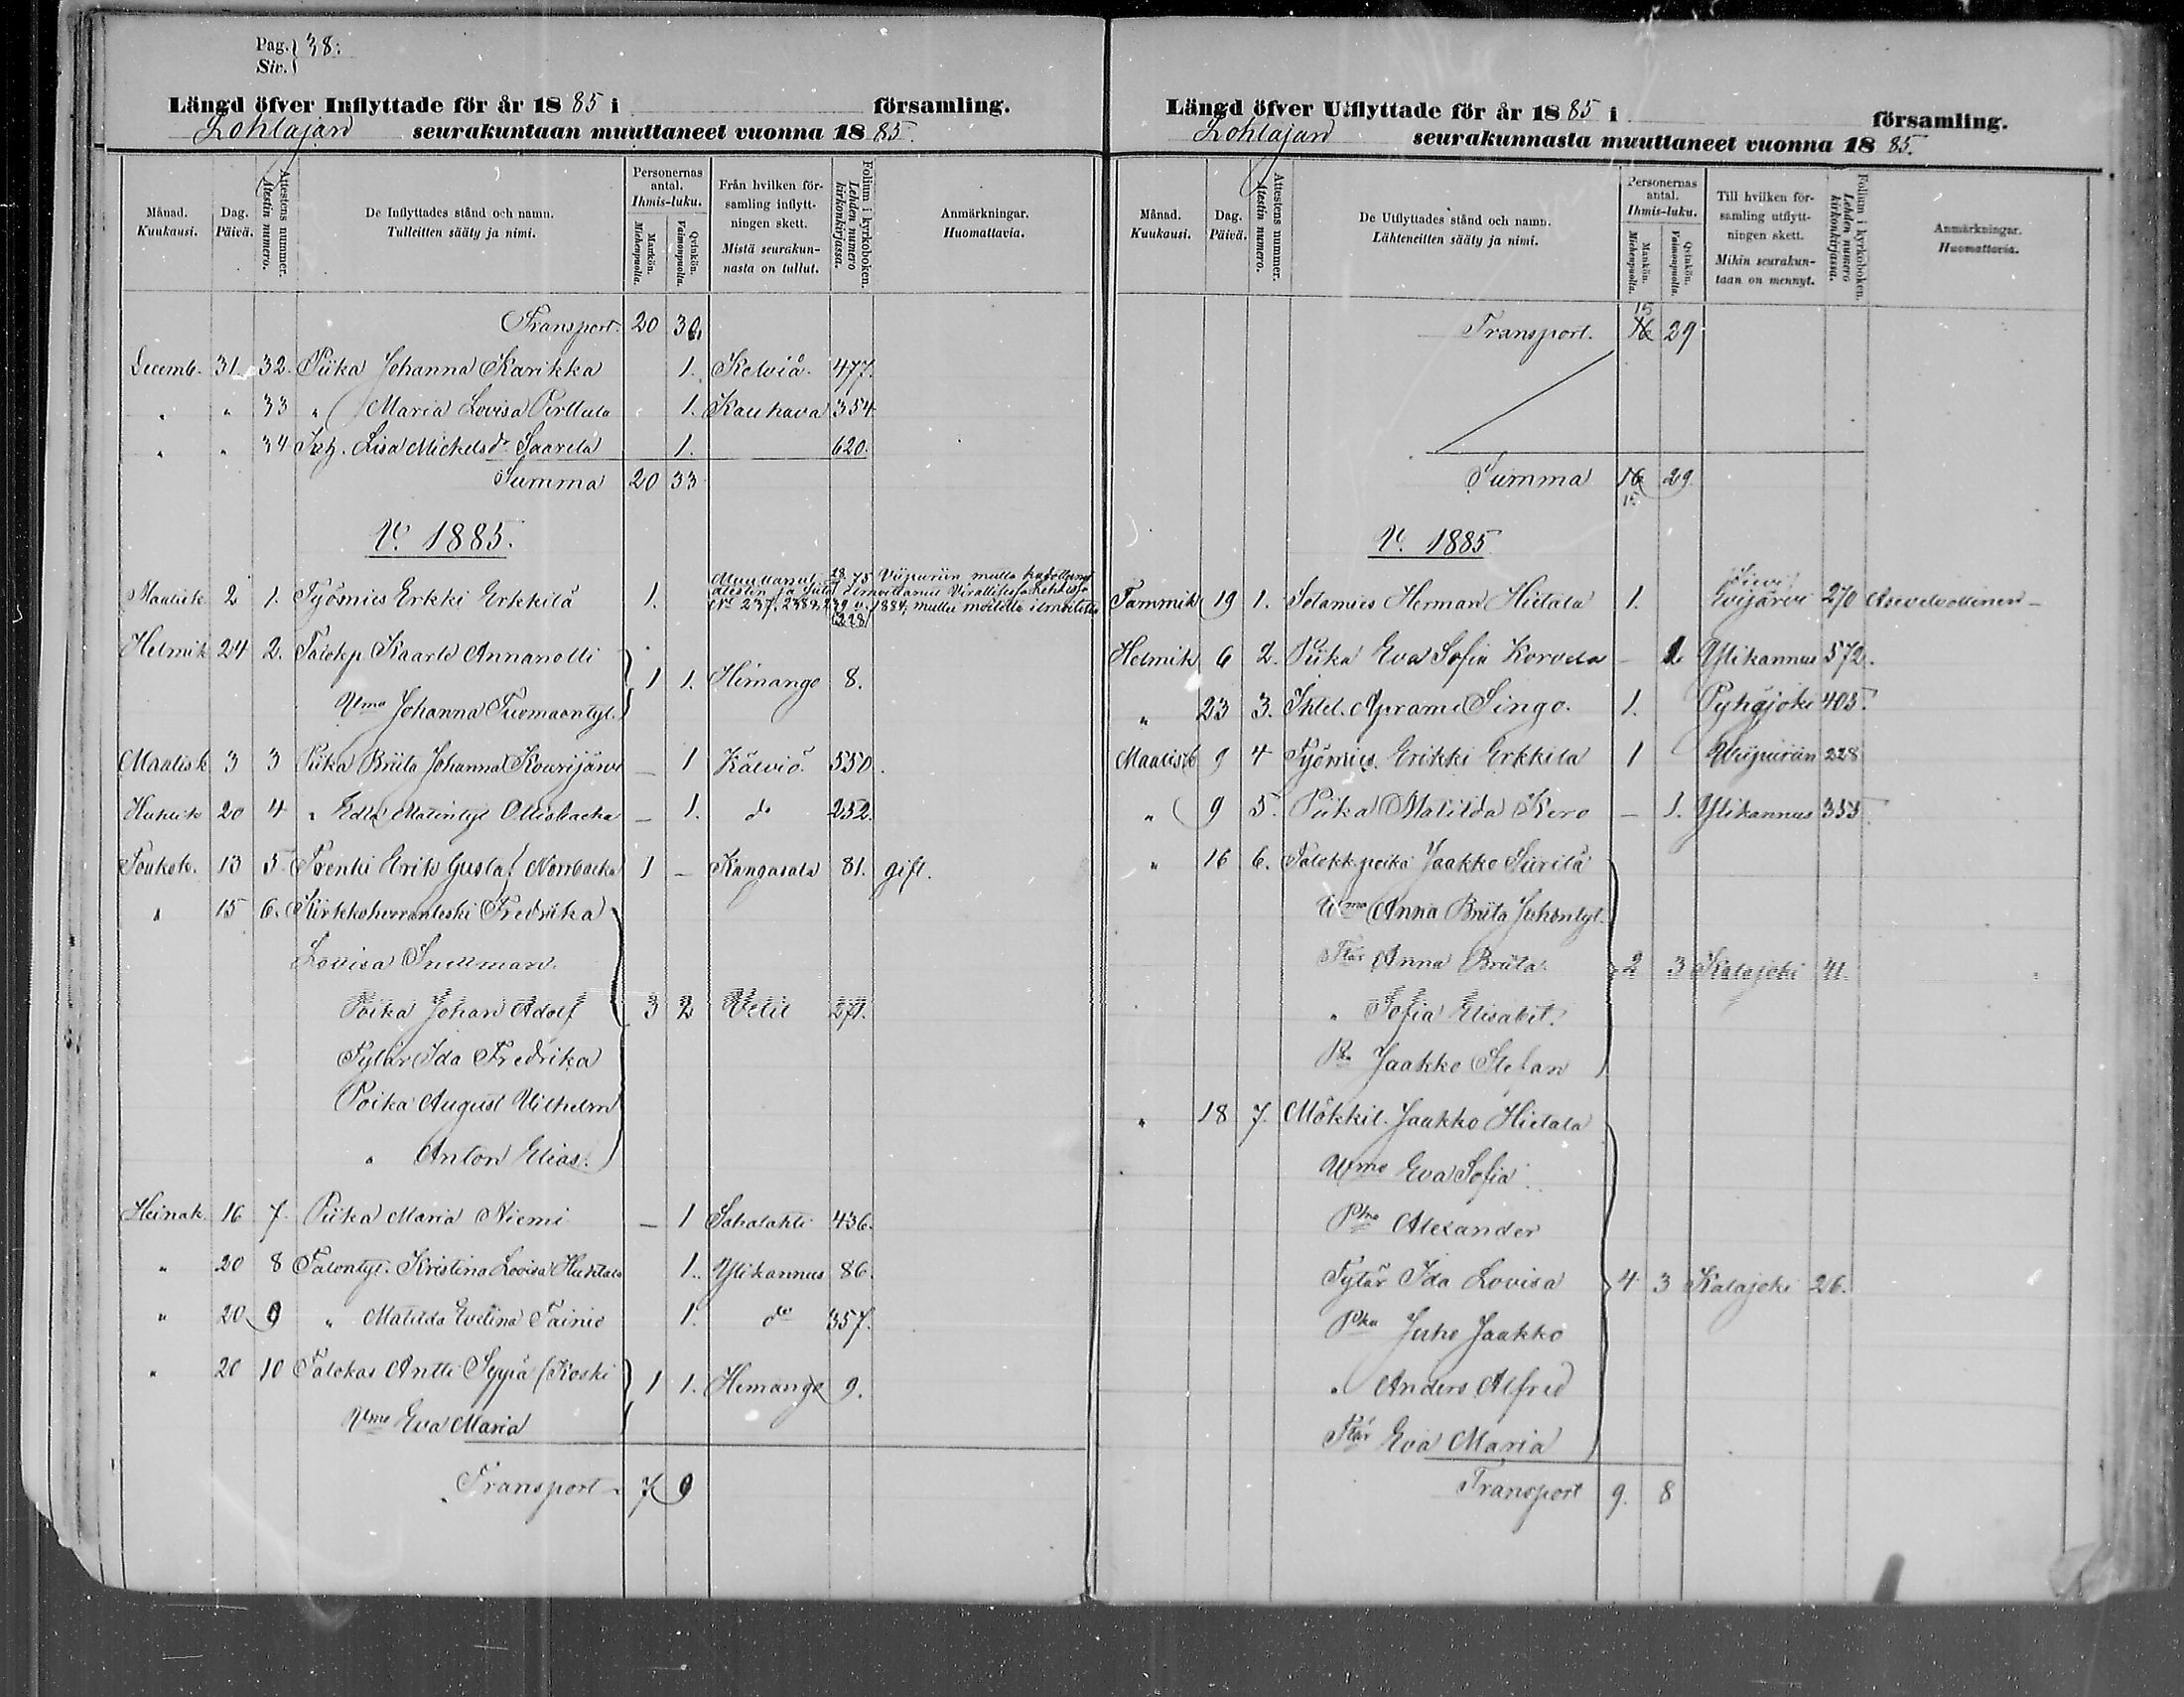 Pag. 38:
Siv.
Längd öfver Inflyttade för år 1885 i församling.
Lohtajan seurakuntaan muuttaneet vuonna 1885.
Månad. Kuukausi.
Dag. Päivä.
Attestens nummer. Atestin numero.
De Inflyttades stånd och namn. Tulleitten sääty ja nimi.
Personernas antal. Ihmis-luku.
Mankön. Miehenpuolia.
Qvinkön. Vaimonpuolia.
Från hvilken församling inflyttningen skett. Mistä seurakunnasta on tullut.
Folium i kyrkoboken. Lehden numero kirkonkirjassa.
Anmärkningar. Huomattavia.
Transport. 20 30
Decemb. 31 32. Piika Johanna Karikka 1. Kelviå. 477.
" " 33 " Maria Lovisa Perttula 1. Kauhava 354
" " 34 Lisa Mickelsdr Saarela 1. 620.
Summa 20 33
V. 1885.
Maalisk. 2 1. Työmies Erkki Erkkilä 1. 1875 Viipuriin mutta kadottanut
No 237, 238, 239 v. 1884, mutta
228
Helmik 24 2. Talokp. Kaarlo Annanolli
Vmo Johanna Tuomaantyt. 1 1. Himango 8.
Maalisk 3 3 Piika Briita Johanna Kourijärvi — 1 Kälviö. 550.
Huhtik 20 4 " Edla Matintyt Ollisbacka — 1. do 252.
Toukok. 13 5. Renki Erik Gusta! Norrbacka 1 — Kangasala 81. gift.
" 15 6. Kirkkoherranleski Fredrika
Lovisa Snellman.
Poika Johan Adolf 3 2 Vetil 271.
Tytär Ida Fredrika
Poika August Vilhelm
" Anton Elias.
Heinak. 16 7. Piika Maria Niemi — 1 Sahalahti 436.
" 20 8 Talontyt. Kristina Lovisa Huhtala 1. Ylikannus 86.
" 20 9 " Matilda Evelina Tainio 1. do 357.
" 20 10 Talokas Antti Seppä (Koski 1 1. Himango 9.
Vmo Eva Maria
Transport 7 9
Längd öfver Utflyttade för år 1885 i församling.
Lohtajan seurakunnasta muuttaneet vuonna 1885.
Månad. Kuukausi.
Dag. Päivä.
Attestens nummer. Atestin numero.
De Utflyttades stånd och namn. Lähteneitten sääty ja nimi.
Personernas antal. Ihmis-luku.
Mankön. Miehenpuolia.
Qvinkön. Vaimonpuolia.
Till hvilken församling utflyttningen skett. Mihin seurakuntaan on mennyt.
Folium i kyrkoboken. Lehden numero kirkonkirjassa.
Anmärkningar. Huomattavia.
15
Transport. 16 29
Summa 16 29
15
V. 1885
Sievi
Tammik 19 1. Sotamies Herman Hietala 1. Evijärvi 270 Asevelvollinen —
Helmik 6 2. Piika Eva Sofia Korvela — 1 Ylikannus 572.
" 23 3. Aprami Singo. 1. Pyhäjoki 405.
Maalisk 9 4 Työmies. Erikki Erkkila 1 Wiipuriin 228
" 9 5. Piika Matilda Kero — 1. Ylikannus 355
" 16 6. Talokk. poika Jaakko Siirilä
Vmo Anna Briita Juhontyt.
Ttär Anna Briita. 2 3 Kalajoki 41.
" Sofia Elisabet.
Pka Jaakko Stefan
" 18 7. Mökkil. Jaakko Hietala
Vmo Eva Sofia
Pka Alexander
Tytär Ida Lovisa 4 3 Kalajoki 26.
Pka Juho Jaakko
" Anders Alfred
Ttär Eva Maria
Transport 9. 8